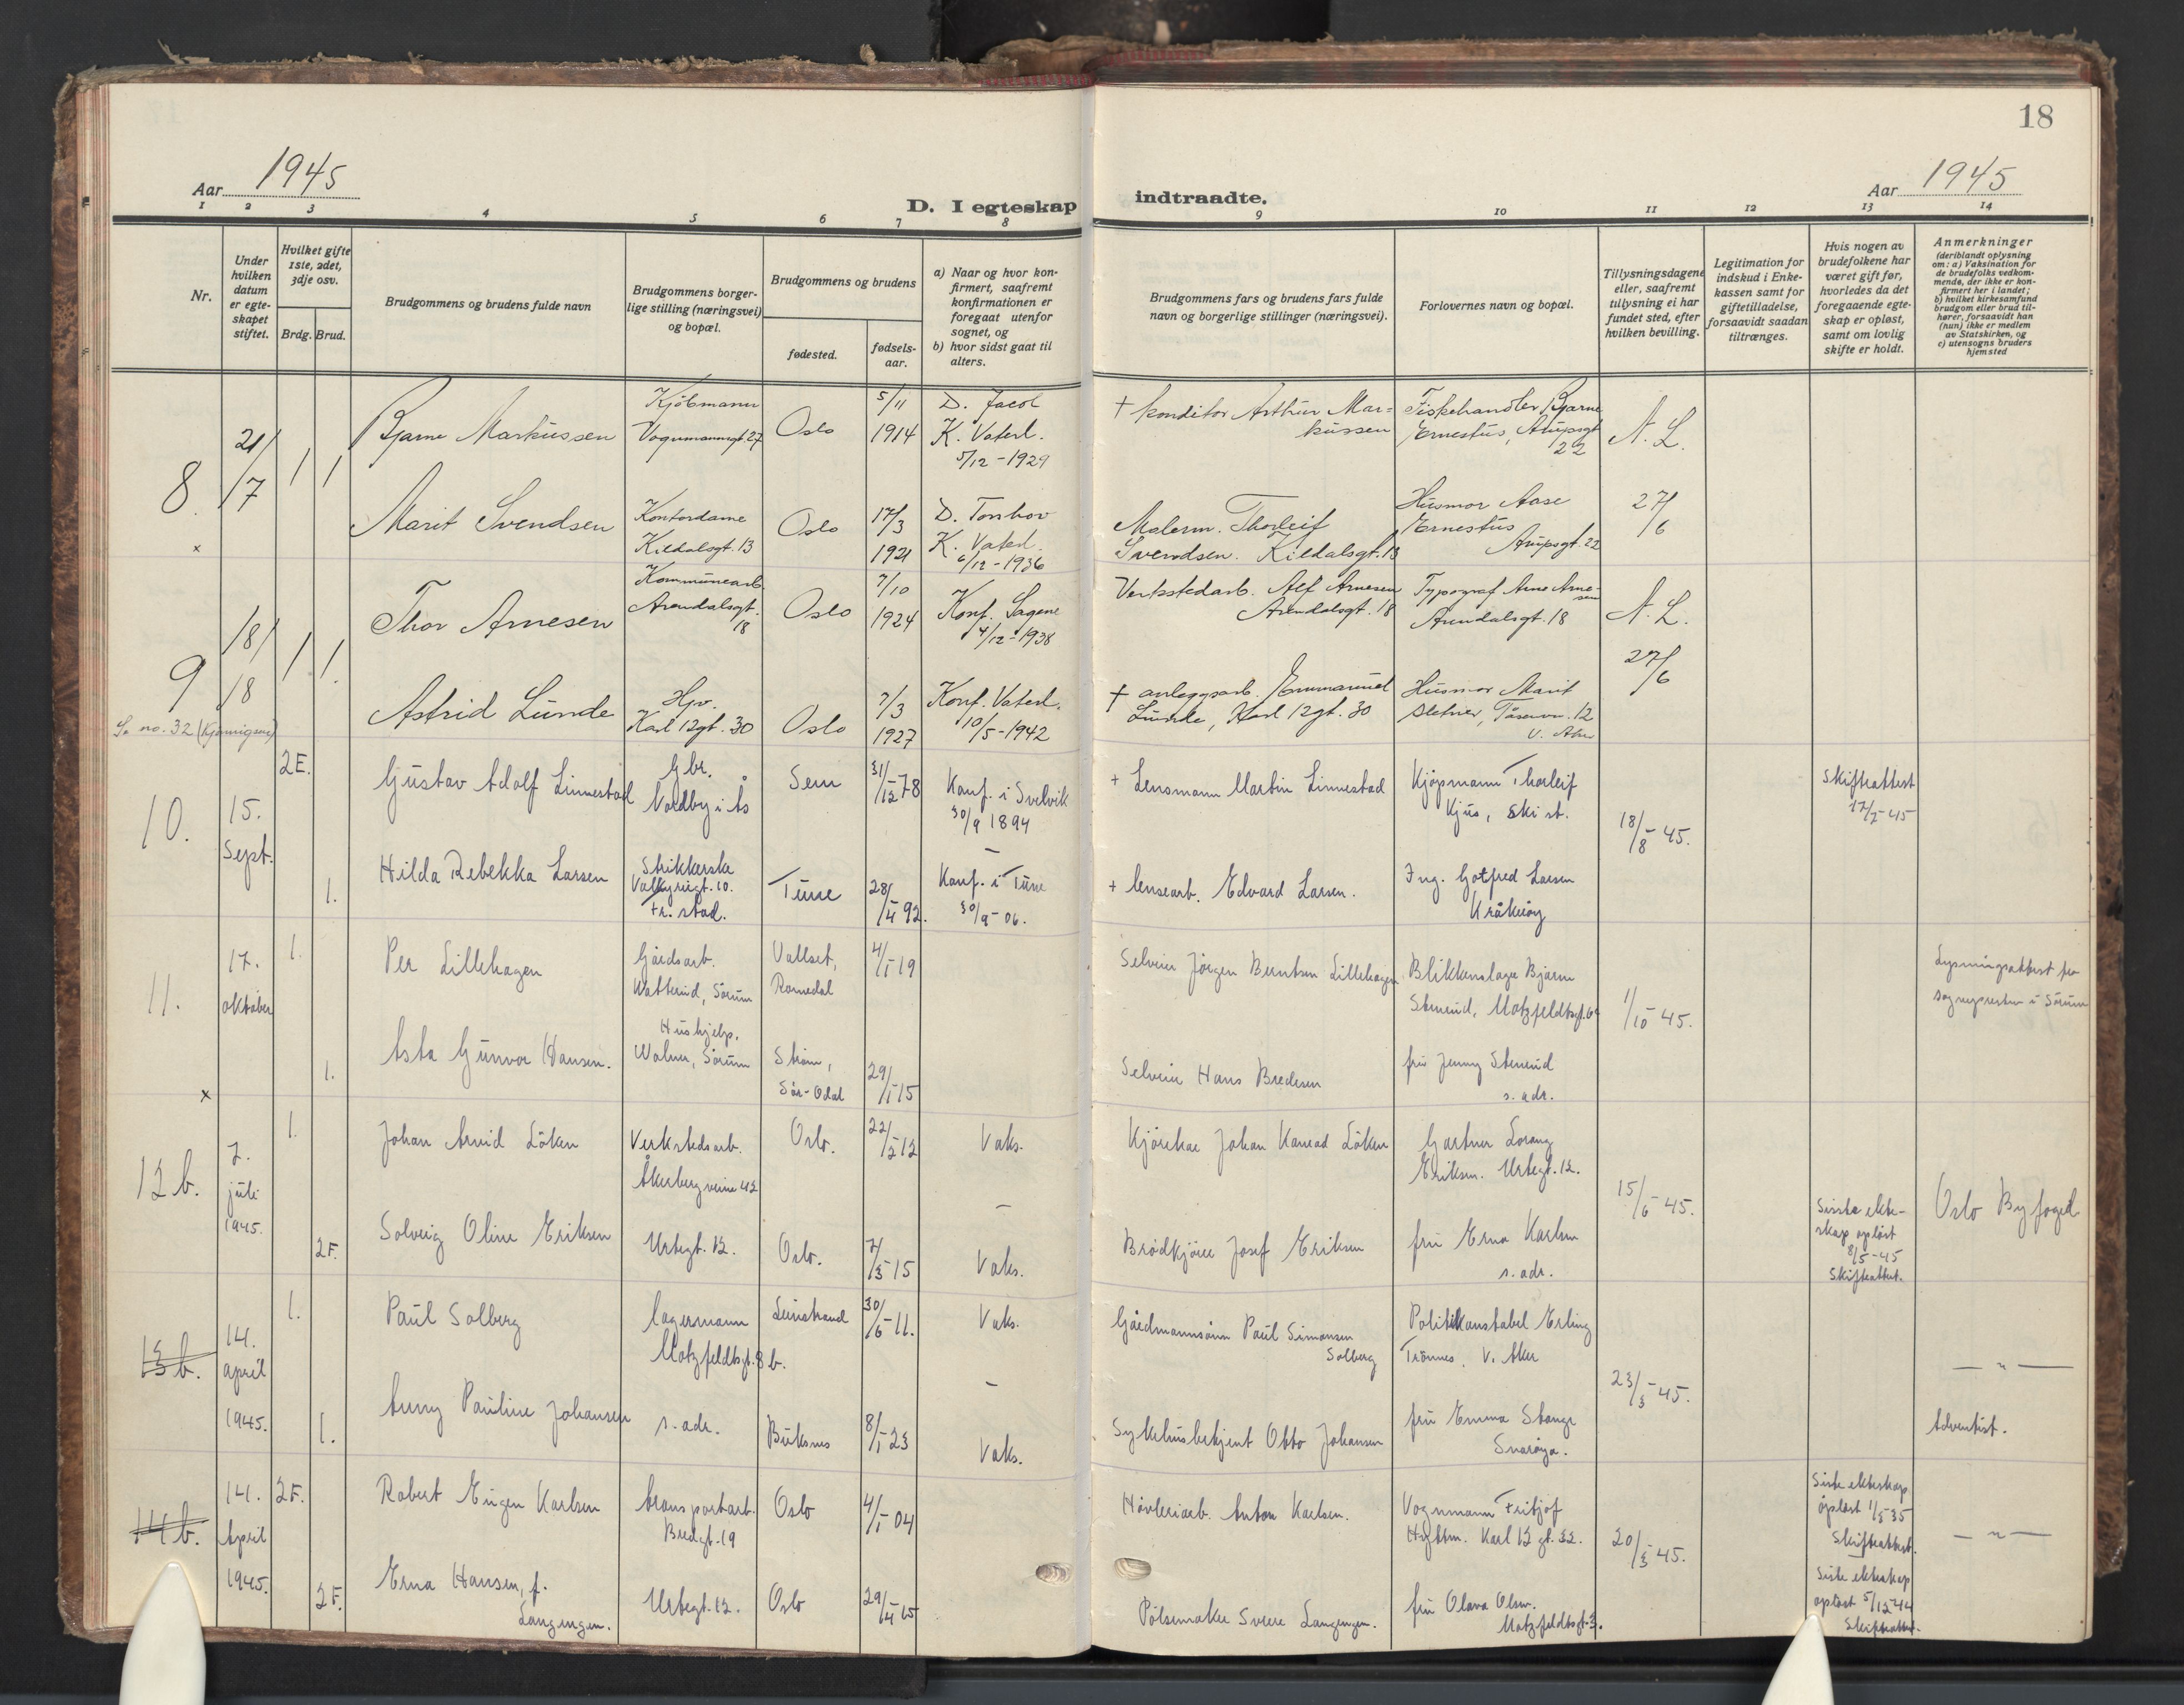 18
Aar 1945
D. I egteskap indtraadte.
Aar 1945
1 2 3 4 5 6 7 8 9 10 11 12 13 14
Nr.
Under hvilken datum er egteskapet stiftet.
Hvilket gifte 1ste, 2det, 3dje osv.
Brdg. Brud.
Brudgommens og brudens fulde navn
Brudgommens borgerlige stilling (næringsvei) og bopæl.
Brudgommens og brudens
fødested.
fødselsaar.
a) Naar og hvor konfirmert, saafremt konfirmationen er foregaat utenfor sognet, og
b) hvor sidst gaat til alters.
Brudgommens fars og brudens fars fulde navn og borgerlige stillinger (næringsvei).
Forlovernes navn og bopæl.
Tillysningsdagene eller, saafremt tillysning ei har fundet sted, efter hvilken bevilling.
Legitimation for indskud i Enkekassen samt for giftetilladelse, forsaavidt saadan tiltrænges.
Hvis nogen av brudefolkene har været gift før, hvorledes da det foregaaende egteskap er opløst, samt om lovlig skifte er holdt.
Anmerkninger (deriblandt oplysning om: a) Vaksination for de brudefolks vedkommende, der ikke er konfirmert her i landet; b) hvilket kirkesamfund brudgom eller brud tilhører, forsaavidt han (hun) ikke er medlem av Statskirken, og c) utensogns bruders hjemsted
8. 21/7 1 1
Bjarne Markussen
Kjöbmann
Vognmannsgt. 27
Oslo
5/11 1914
D. Jacob
K. Vaterl.
5/12 - 1929
+ konditor Arthur Markussen
Fiskehandler Bjarne
Ernestus, Arupsgt
22
N. L.
27/6
Marit Svendsen
Kontordame
Kildalsgt. 13
Oslo
17/3 1921
D. Torshov
K. Vaterl.
6/12 - 1936
Malerm. Thorleif
Svendsen. Kildalsgt. 13
Husmor Aase
Ernestus
Arupsgt. 22
x
9 18/8 1 1.
Thor Arnesen
Kommunearb.
Arendalsgt.
18
Oslo
7/10 1924
Konf. Sagene
4/12 - 1938
Verkstedarb. Alf Arnesen
Arendalsgt. 18
Typograf Arne Arnesen
Arendalsgt. 18
N. L.
27/6
Astrid Lunde
Hjv.
Karl 12gt. 30
Oslo
7/3 1927
Konf. Vaterl.
10/5 - 1942
+ anleggsarb. Emmanuel
Lunde, Karl 12gt. 30
Husmor Marit
Sletner, Tåsenv. 12
V. Aker
10. 15. Sept. 2E.
Gustav Adolf Linnestad
Gbr.
Nordby i Ås
Sem
31/12-78
Konf. i Svelvik
30/9 1894
+ Lensmann Martin Linnestad
Kjøpmann Thorleif
Kjus, Ski st.
18/8-45.
Skifteattest
17/7-45
1.
Hilda Rebekka Larsen
Strikkerske
Valkyriegt. 10.
Fr. stad.
Tune
28/4 92.
Konf. i Tune
30/9-06.
+ lensearb. Edvard Larsen.
Ing. Gotfred Larsen
Kråkerøy
11. 17. oktober 1.
Per Lillehagen
Gårdsarb.
Sørum
Vallset,
Romedal
4/1-19
Selveier Jørgen Berntsen Lillehagen
Blikkenslager Bjarne
Stenerud, Motzfeldtsgt.
1/10-45.
Lysningsattest fra
sognepresten i Sørum
1.
Asta Gunvor Hansen.
Hushjelp,
Sørum
Strøm,
Sør-Odal
29/1-15
Selveier Hans Bredesen
fru Jenny Stenerud
s. adr.
x
12b. 7. juli 1945. 1.
Johan Arvid Löken
Verkstedsarb.
Åkerbergveien 42
Oslo.
22/2-12
Vaks.
Kjørekar Johan Konrad Löken
Gartner Lorang
Eriksen. Urtegt. 12.
15/6-45.
Oslo Byfoged
2F.
Solveig Oline Eriksen
Urtegt. 12.
Oslo.
7/3-15
Vaks.
Brødkjører Josef Eriksen
fru Erna Karlsen
s. adr.
Siste ekteskap opløst
8/5-45
Skifteattest.
13b. 14. april 1945. 1.
Paul Solberg
lagermann
Motzfeldtsgt. 8b.
Leinstrand
30/6-11.
Vaks.
Gårdmannsønn Paul Simonsen
Solberg
Politikonstabel Erling
Trönnes, V. Aker
23/3-45.
— " —
1.
Anny Pauline Johansen
s. adr.
Buksnes
8/1-23
Vaks.
Sykehusbetjent Otto Johansen
fru Emma Stange
Snarøya.
Adventist.
14b. 14. April 1945. 2F.
Robert Eugen Karlsen
transportarb.
Bredgt. 19
Oslo
4/1-04
Høvleriarb. Anton Karlsen.
Vognmann Fritjof
Karl 12 gt. 32.
20/3-45.
Siste ekteskap
opløst 1/3-35
Skifteattest.
— " —
2F.
Erna Hansen, f.
Langengen.
Urtegt. 12.
Oslo
29/4-15
Pølsemaker Sverre Langengen.
fru Olava Olsen.
Motzfeldtsgt. 3.
Siste ekteskap
opløst 5/12-44
Skifteattest.